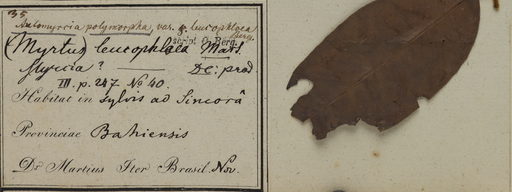 135.
Aulomyrcia polymorpha, var. γ. leucophloea
Berg.
script. O. Berg.
(Myrtus) leucophloea Mart.
Myrcia? — DC: prod.
III. p. 247. No 40.
Habitat in sylvis ad Sincorâ
Provinciae Bahiensis
Dr Martius Iter Brasil. Nov.